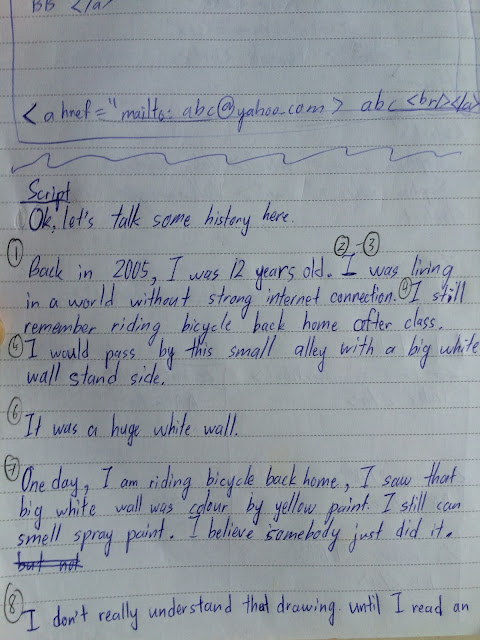 BB </a>
<a href="mailto: abc@yahoo.com> abc <br/></a>
Script
Ok, let's talk some history here.
② -③
① Back in 2005, I was 12 years old. I was living
in a world without strong internet connection. I still
remember riding bicycle back home after class.
I would pass by this small alley with a big white
wall stand side.
⑥ It was a huge white wall.
⑦ One day, I am riding bicycle back home, I saw that
big white wall was colour by yellow paint. I still can
smell spray paint. I believe somebody just did it.
but not
⑧ I don't really understand that drawing. until I read an